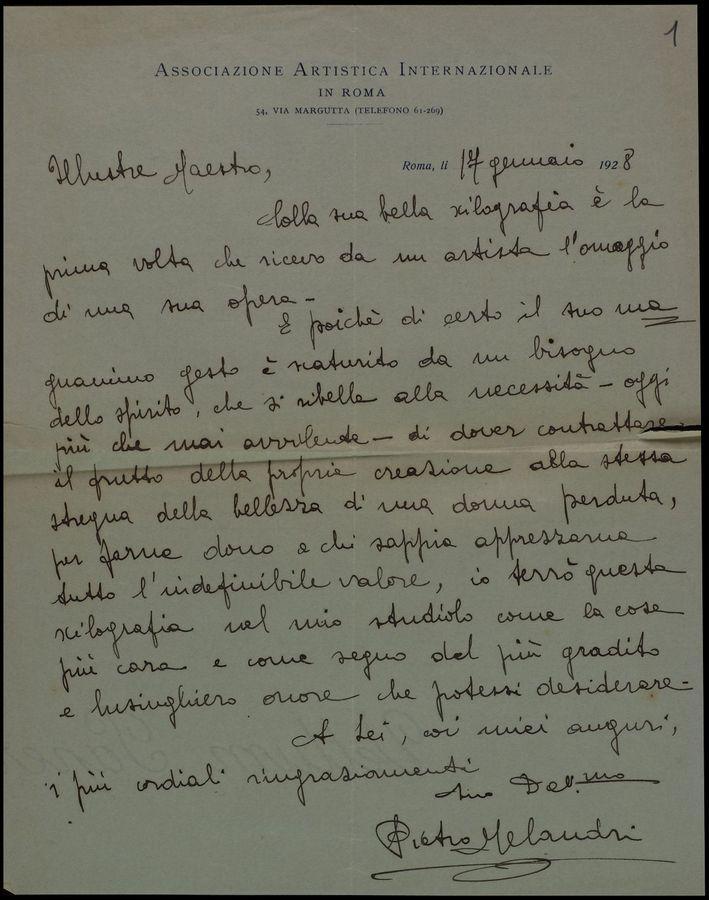 1
ASSOCIAZIONE ARTISTICA INTERNAZIONALE
IN ROMA
54, VIA MARGUTTA (TELEFONO 61-269)
Roma, li 17 gennaio 1928
Illustre Maestro,
Colla sua bella xilografia è la
prima volta che ricevo da un artista l'omaggio
di una sua opera -
E poichè di certo il suo ma
gnanimo gesto è scaturito da un bisogno
dello spirito, che si ribella alla necessità - oggi
più che mai avvilente - di dover contrattare
il frutto della propria creazione alla stessa
stregua della bellezza di una donna perduta,
per farne dono a chi sappia apprezzarne
tutto l'indefinibile valore, io terrò questa
xilografia nel mio studiolo come la cosa
più cara e come segno del più gradito
e lusinghiero onore che potessi desiderare -
A Lei, coi miei auguri,
i più cordiali ringraziamenti
Suo Dev.mo
Pietro Melandri